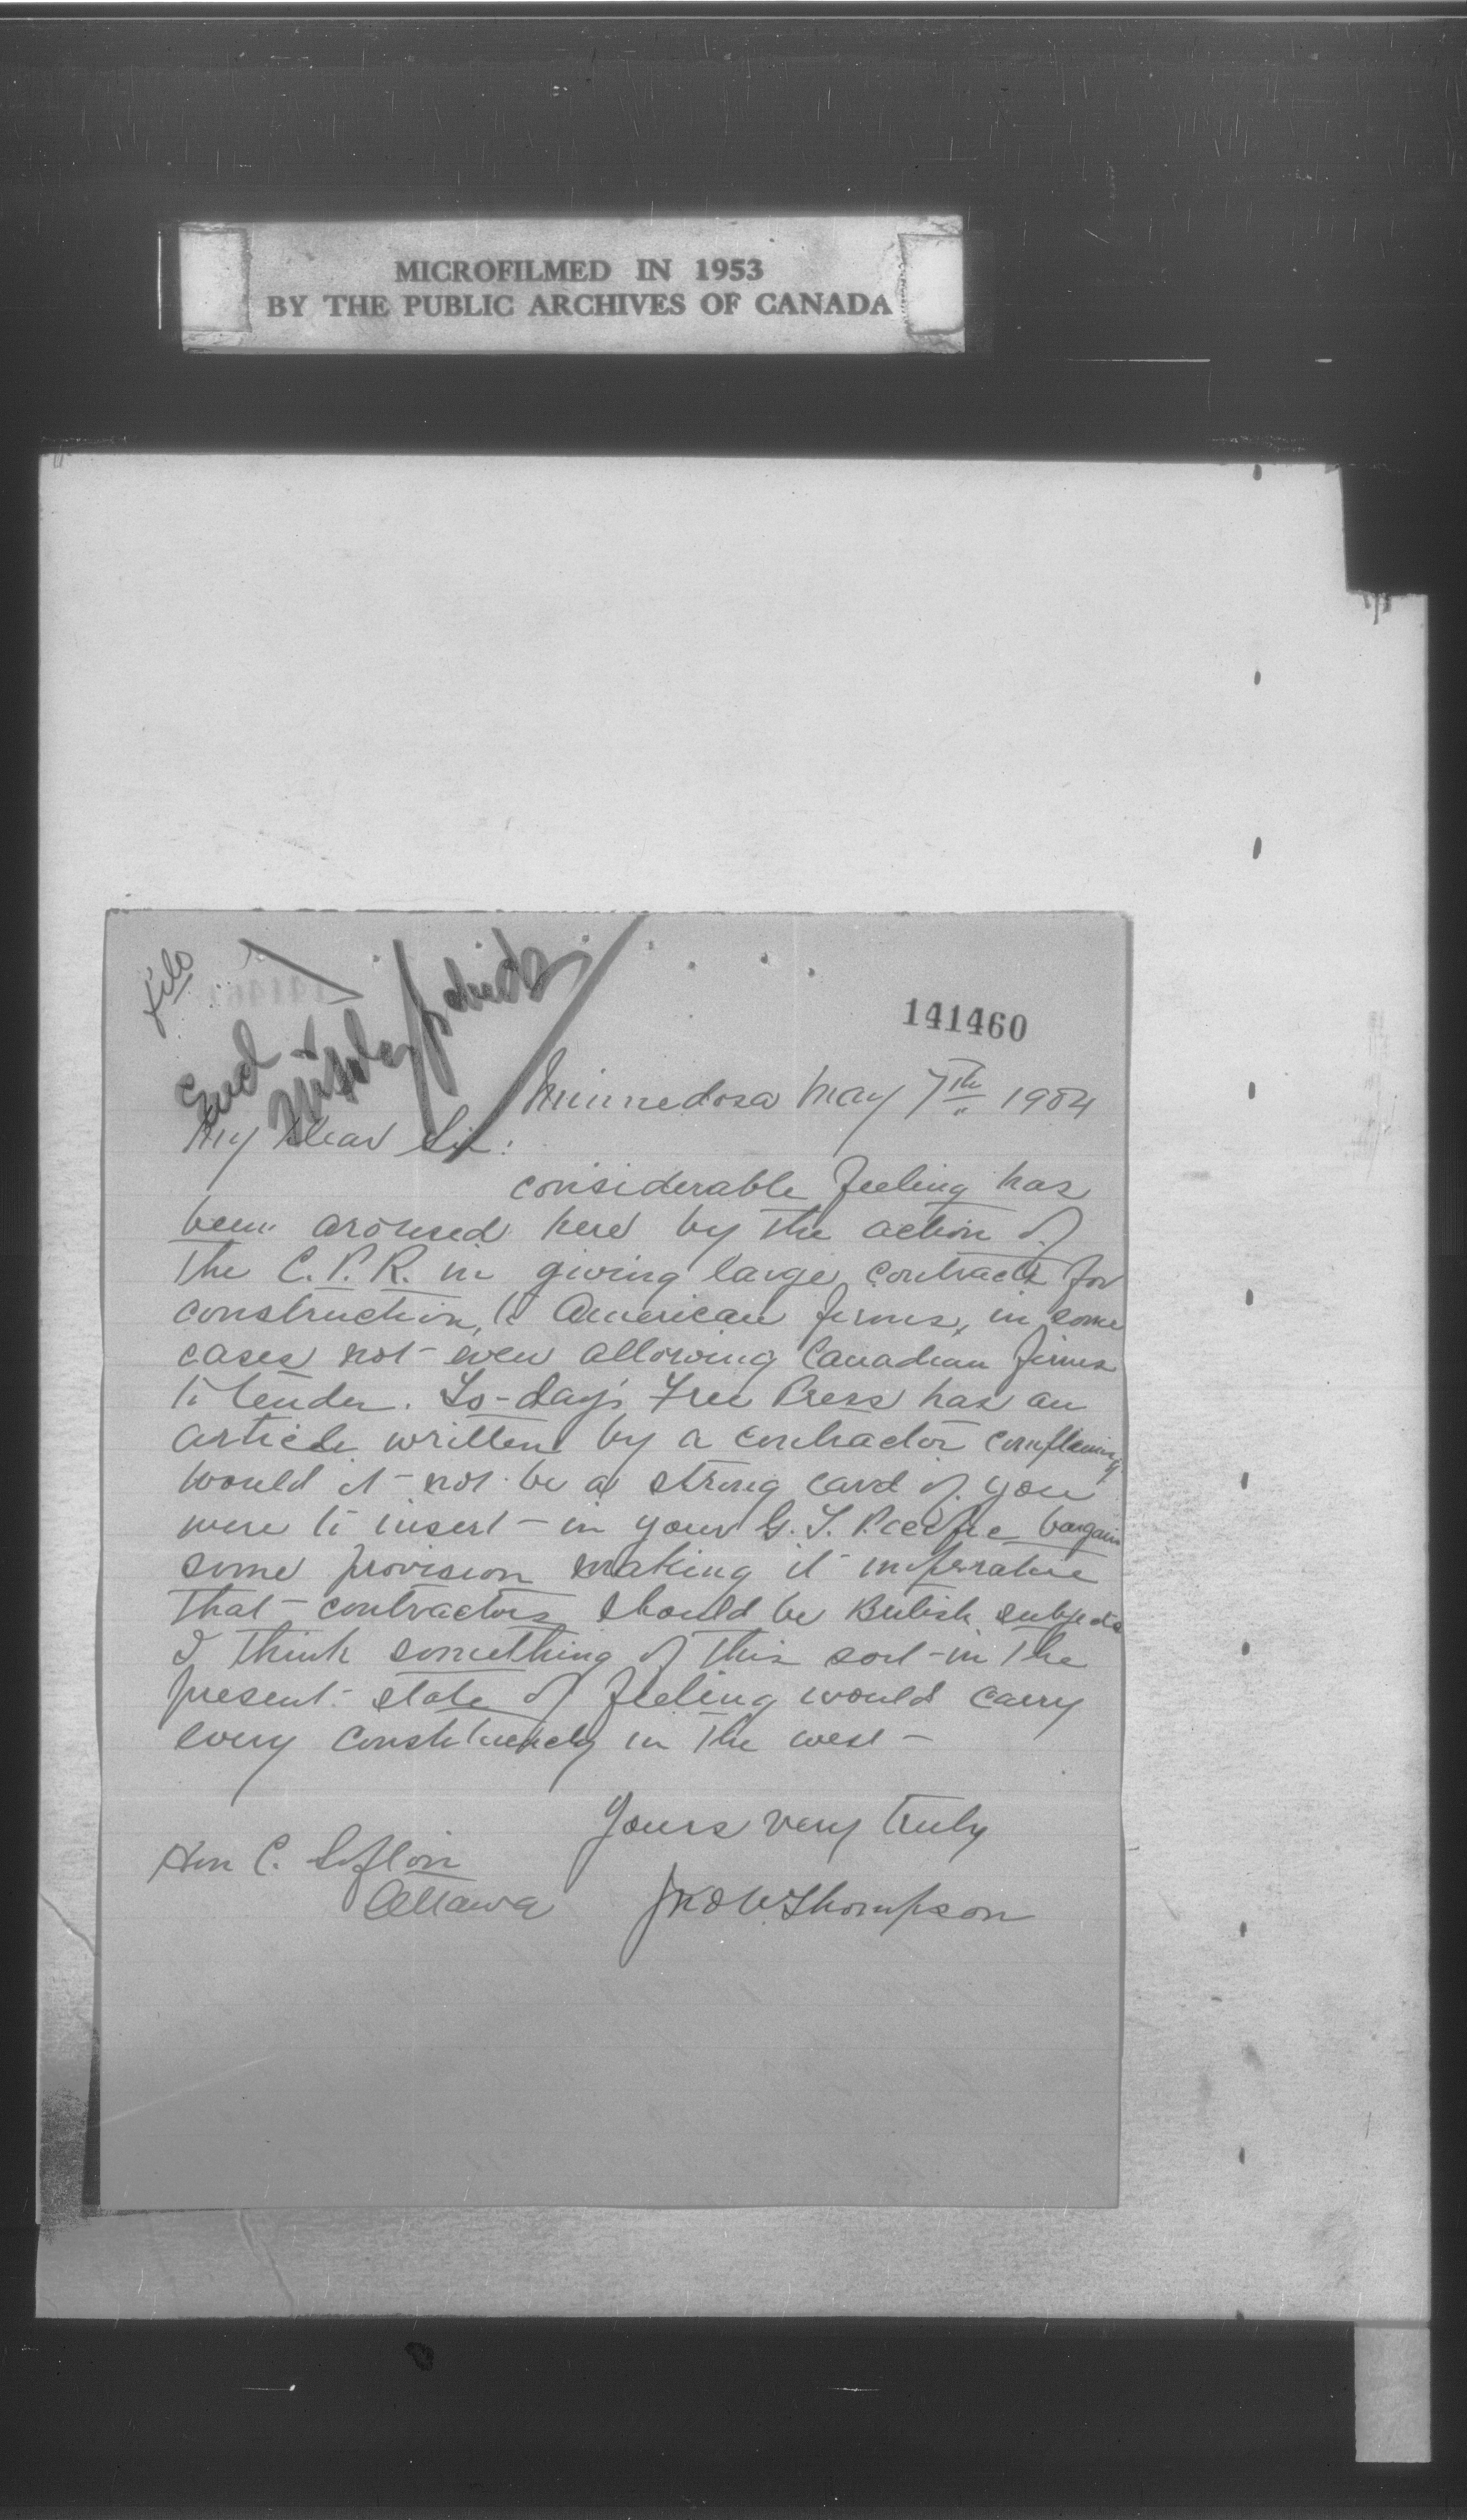 MICROFILMED IN 1953
BY THE PUBLIC ARCHIVES OF CANADA
file
141460
Minnedosa May 7th 1904
My dear Sir:
considerable feeling has
been aroused here by the action of
the C.P.R. in giving large contracts for
construction, to American firms, in some
cases not even allowing Canadian firms
to tender. To-day's Free Press has an
article written by a contractor complaining
would it not be a strong card if you
were to insert - in your G. T. Pacific bargain
some provision making it imperative
that contractors should be British subjects
I think something of this sort - in the
present state of feeling would carry
every constituency in the west -
Yours very truly
Hon C. Sifton
Ottawa
Jno W. Thompson